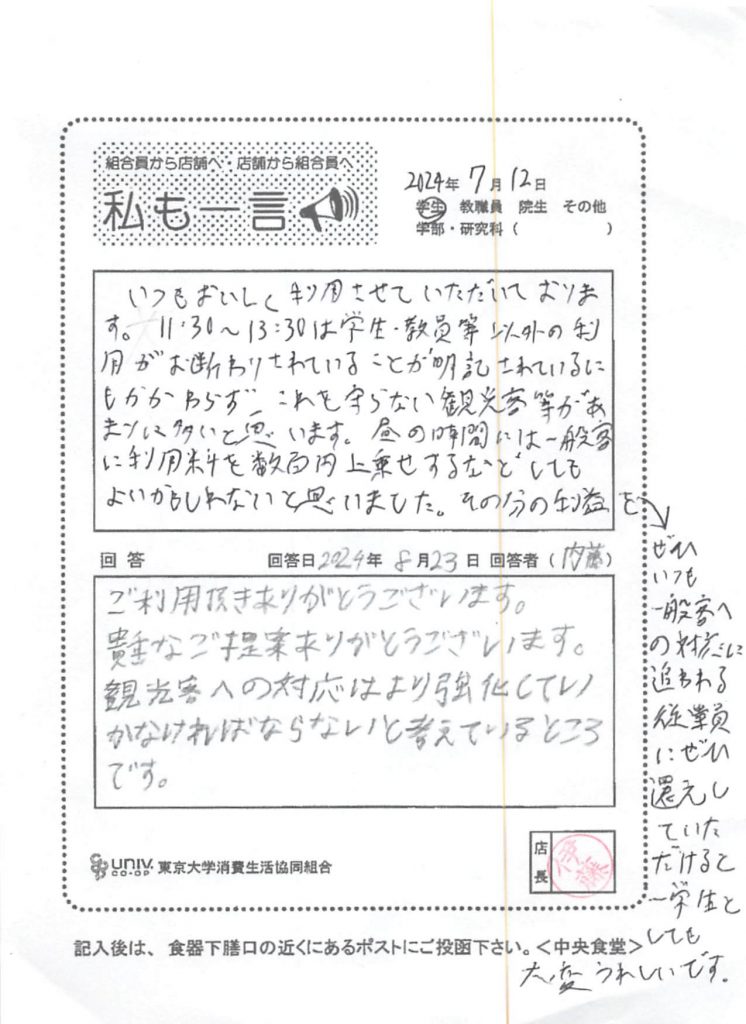 組合員から店舗へ・店舗から組合員へ
私も一言
2024年 7月12日
学生 教職員 院生 その他
学部・研究科（ ）
いつもおいしく利用させていただいておりま
す。11:30～13:30は学生・教員等以外の利
用がお断わりされていることが明記されているに
もかかわらず、これを守らない観光客等があ
まりに多いと思います。昼の時間には一般客
に利用料を数百円上乗せするなどしても
よいかもしれないと思いました。その分の利益を
ぜひ
いつも
一般客へ
の対応に
追われる
従業員
にぜひ
還元し
ていた
だけると
一学生と
しても
大変うれしいです。
回答 回答日2024年 8月23日 回答者（内藤）
ご利用頂きありがとうございます。
貴重なご提案ありがとうございます。
観光客への対応はより強化してい
かなければならないと考えているところ
です。
UNIV.
CO-OP
東京大学消費生活協同組合
店長
記入後は、食器下膳口の近くにあるポストにご投函下さい。＜中央食堂＞